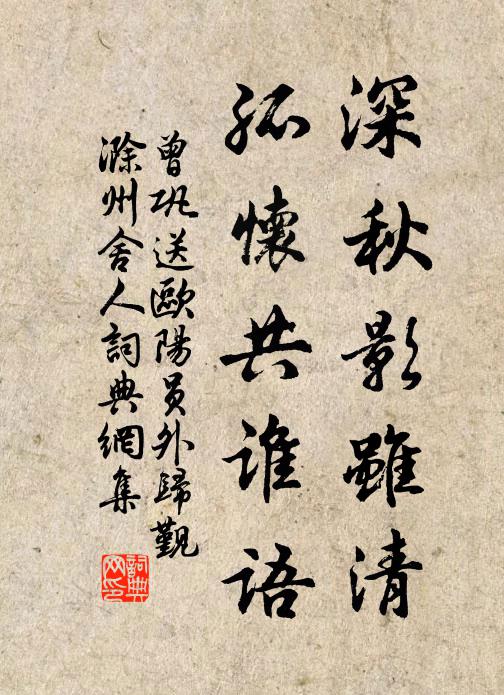 深秋影雖清
孤懷共誰语
曾巩送歐陽员外歸觐
滁州舍人詞典網集
詞典网印